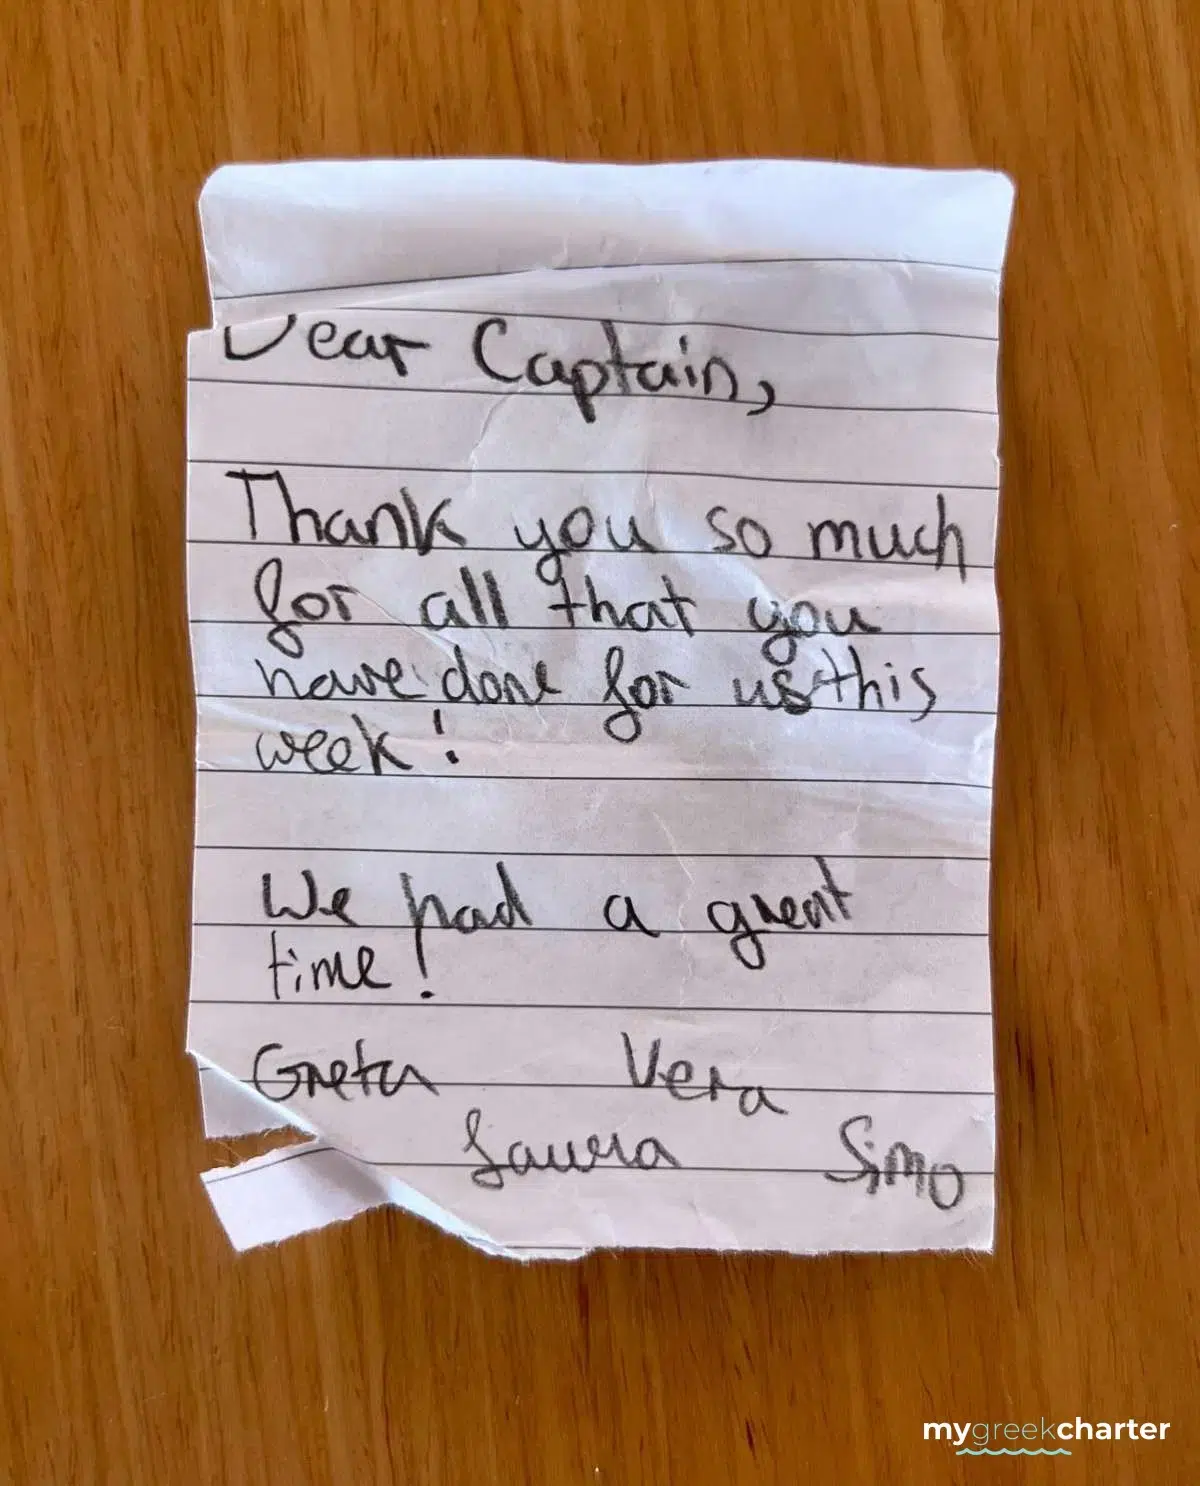 Dear Captain,
Thank you so much
for all that you
have done for us this
week!
We had a great
time!
Greta Vera
Laura Simo
mygreekcharter